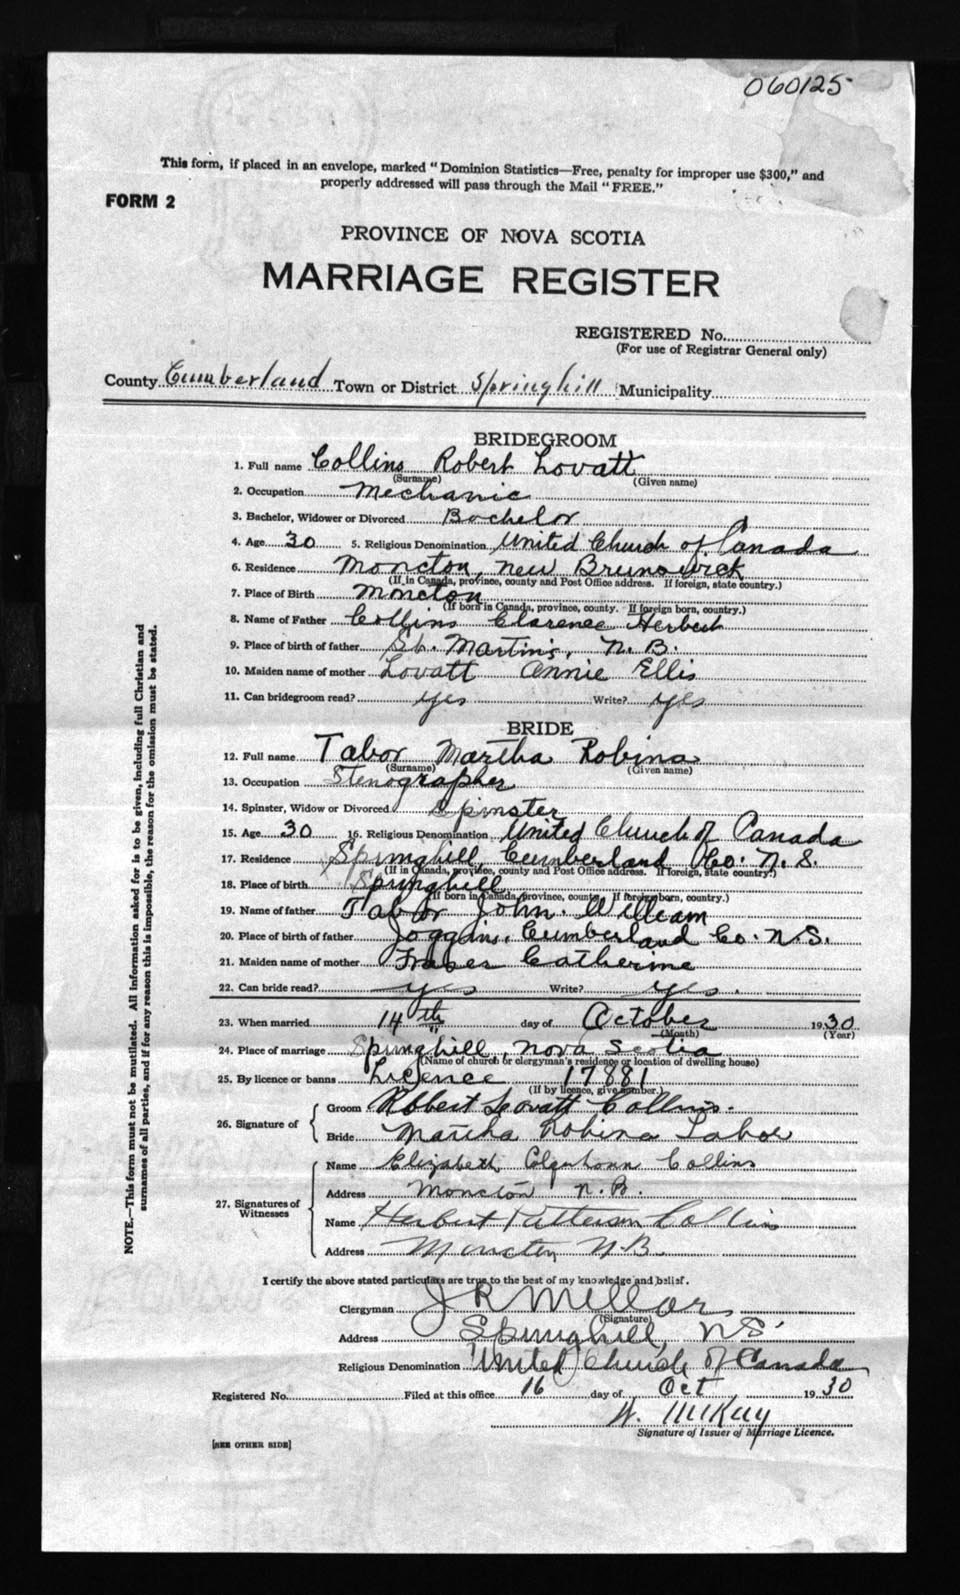 060125
This form, if placed in an envelope, marked "Dominion Statistics—Free, penalty for improper use $300," and
properly addressed will pass through the Mail "FREE."
FORM 2
PROVINCE OF NOVA SCOTIA
MARRIAGE REGISTER
REGISTERED No.
(For use of Registrar General only)
County Cumberland Town or District Springhill Municipality
BRIDEGROOM
1. Full name Collins Robert Lovatt
(Surname) (Given name)
2. Occupation Mechanic
3. Bachelor, Widower or Divorced Bachelor
4. Age 30 5. Religious Denomination United Church of Canada
6. Residence Moncton, New Brunswick
(If in Canada, province, county and Post Office address. If foreign, state country.)
7. Place of Birth Moncton
(If born in Canada, province, county. If foreign born, country.)
8. Name of Father Collins Clarence Herbert
9. Place of birth of father St. Martins, N.B.
10. Maiden name of mother Lovatt Annie Ellis
11. Can bridegroom read? yes Write? yes
BRIDE
12. Full name Tabor Martha Robina
(Surname) (Given name)
13. Occupation Stenographer
14. Spinster, Widow or Divorced Spinster
15. Age 30 16. Religious Denomination United Church of Canada
17. Residence Springhill, Cumberland Co. N.S.
(If in Canada, province, county and Post Office address. If foreign, state country.)
18. Place of birth Springhill
(If born in Canada, province, county. If foreign born, country.)
19. Name of father Tabor John William
20. Place of birth of father Joggins, Cumberland Co. N.S.
21. Maiden name of mother Fraser Catherine
22. Can bride read? yes Write? yes.
23. When married 14th day of October 1930
(Month) (Year)
24. Place of marriage Springhill, Nova Scotia
(Name of church or clergyman's residence or location of dwelling house)
25. By licence or banns Licence 17881
(If by licence, give number.)
26. Signature of Groom Robert Lovatt Collins.
Bride Martha Robina Tabor
27. Signatures of Witnesses Name Elizabeth Colquhoun Collins
Address Moncton N.B.
Name Herbert Patterson Collins
Address Moncton N.B.
I certify the above stated particulars are true to the best of my knowledge and belief.
Clergyman J R Millar
(Signature)
Address Springhill, N.S.
Religious Denomination United Church of Canada
Registered No. Filed at this office 16 day of Oct 1930
W. McKay
Signature of Issuer of Marriage Licence.
[SEE OTHER SIDE]
NOTE.—This form must not be mutilated. All information asked for is to be given, including full Christian and
surnames of all parties, and if for any reason this is impossible, the reason for the omission must be stated.